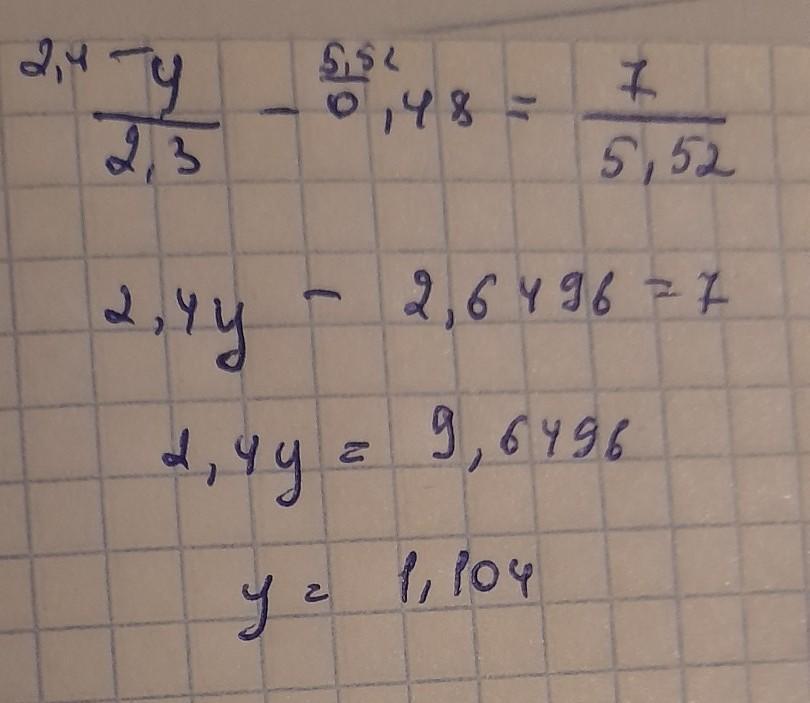 2,4 y 5,52
y/2,3 - 0,48 = 7/5,52
2,4y - 2,6496 = 7
2,4y = 9,6496
y = 1,104